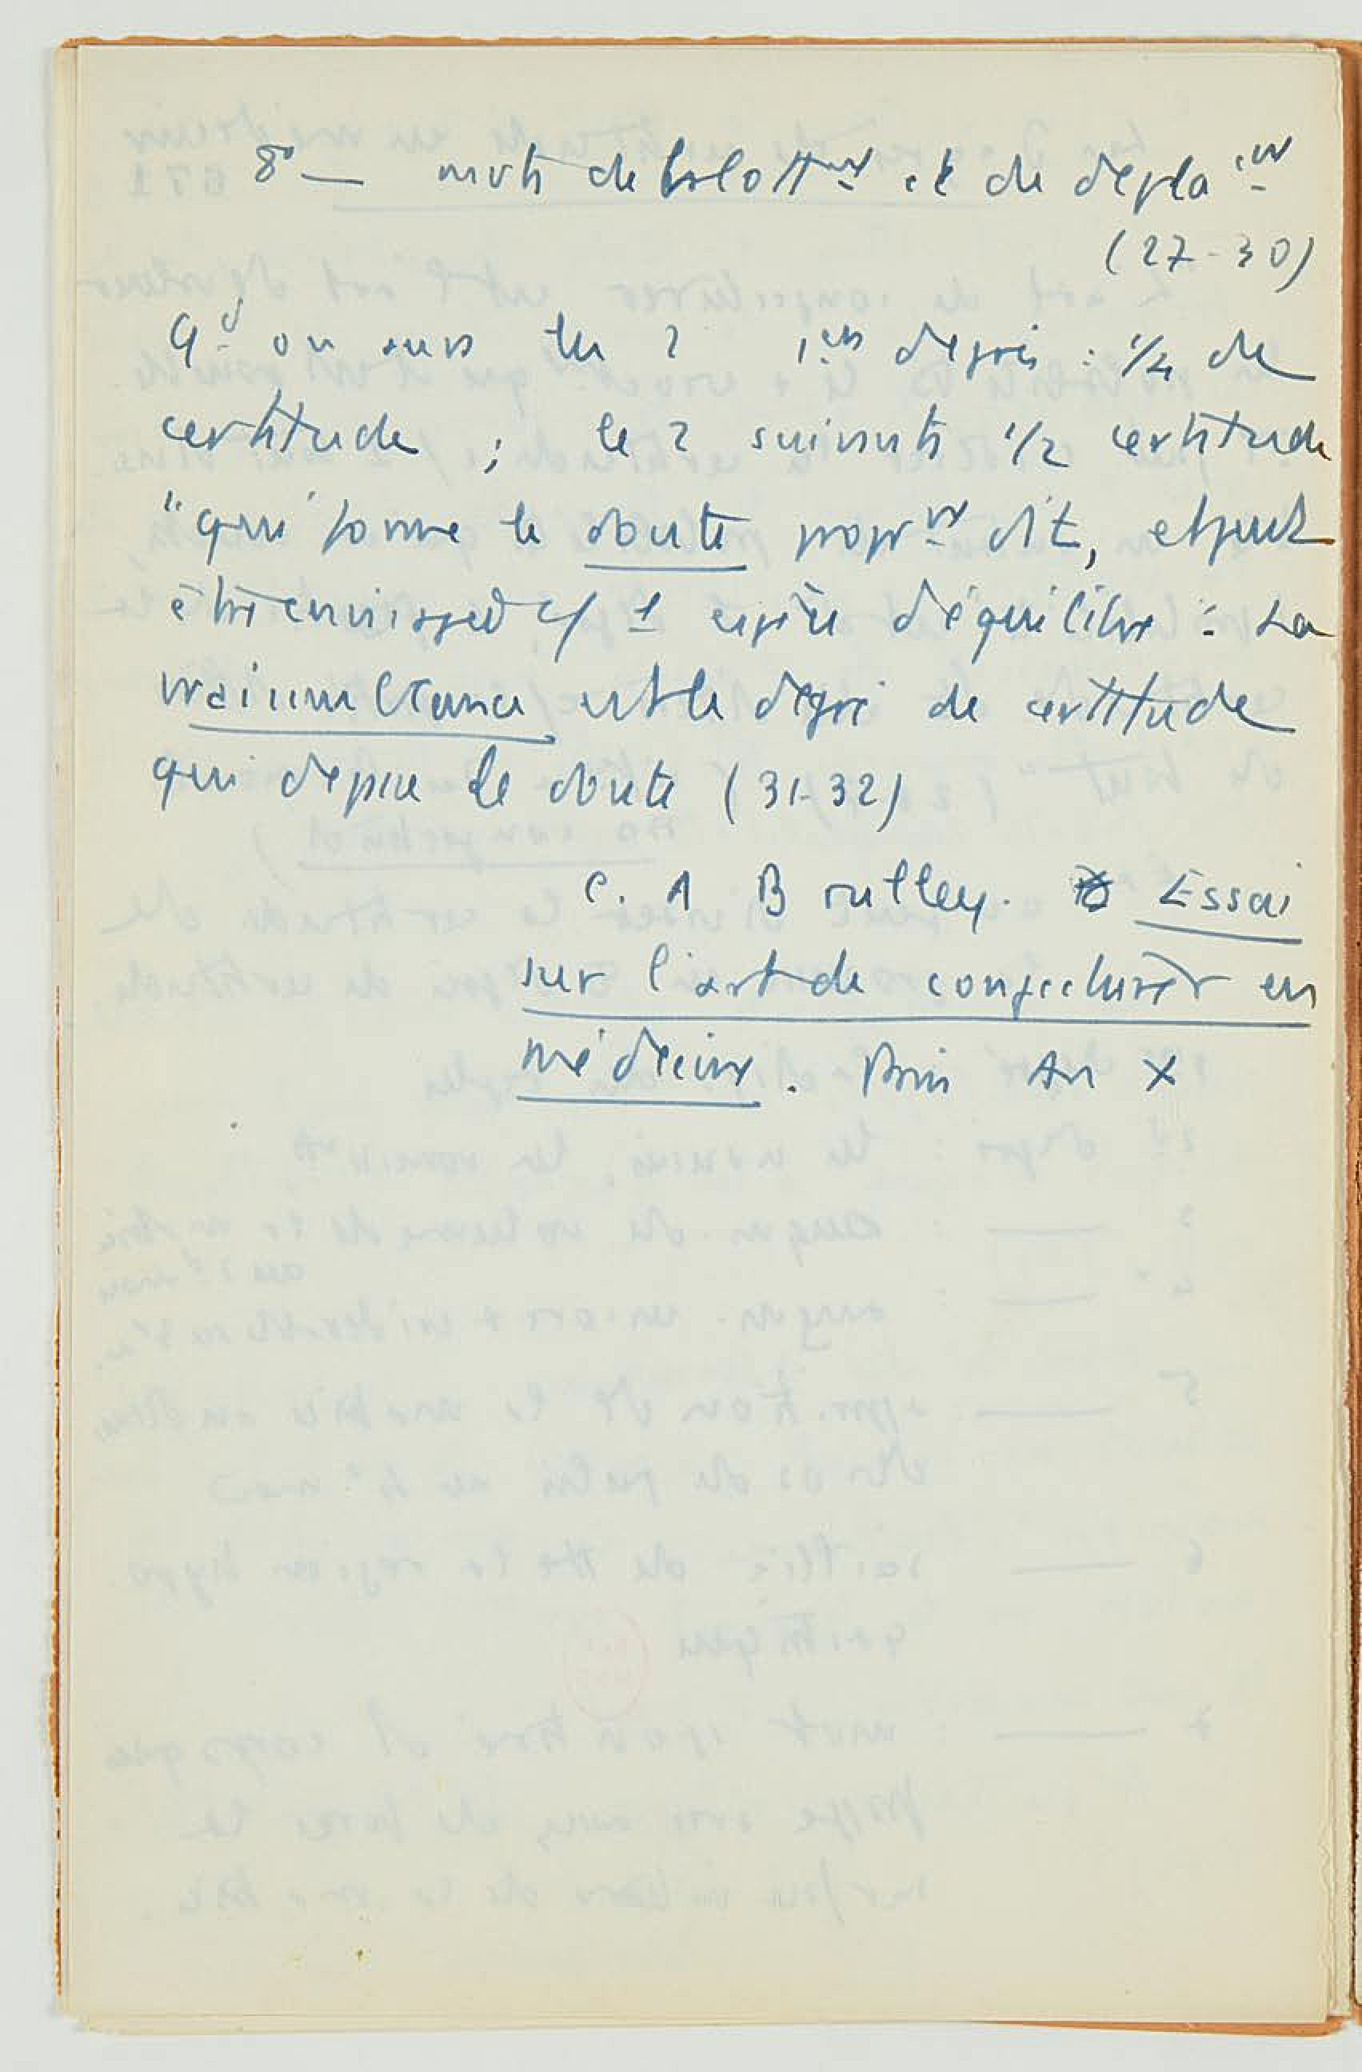 8° — mvts de balottnt et de déplacnt
(27-30)
Qd on a les 2 1ers degrés : 1/4 de
certitude ; les 2 suivants 1/2 certitude
"qui forme le doute proprnt dit, et peut
être envisagé c/ 1 espèce d'équilibre : La
vraisemblance est le degré de certitude
qui dépasse le doute (31-32)
C. A Brulley. Essai
sur l'art de conjecturer en
médecine. Paris An X